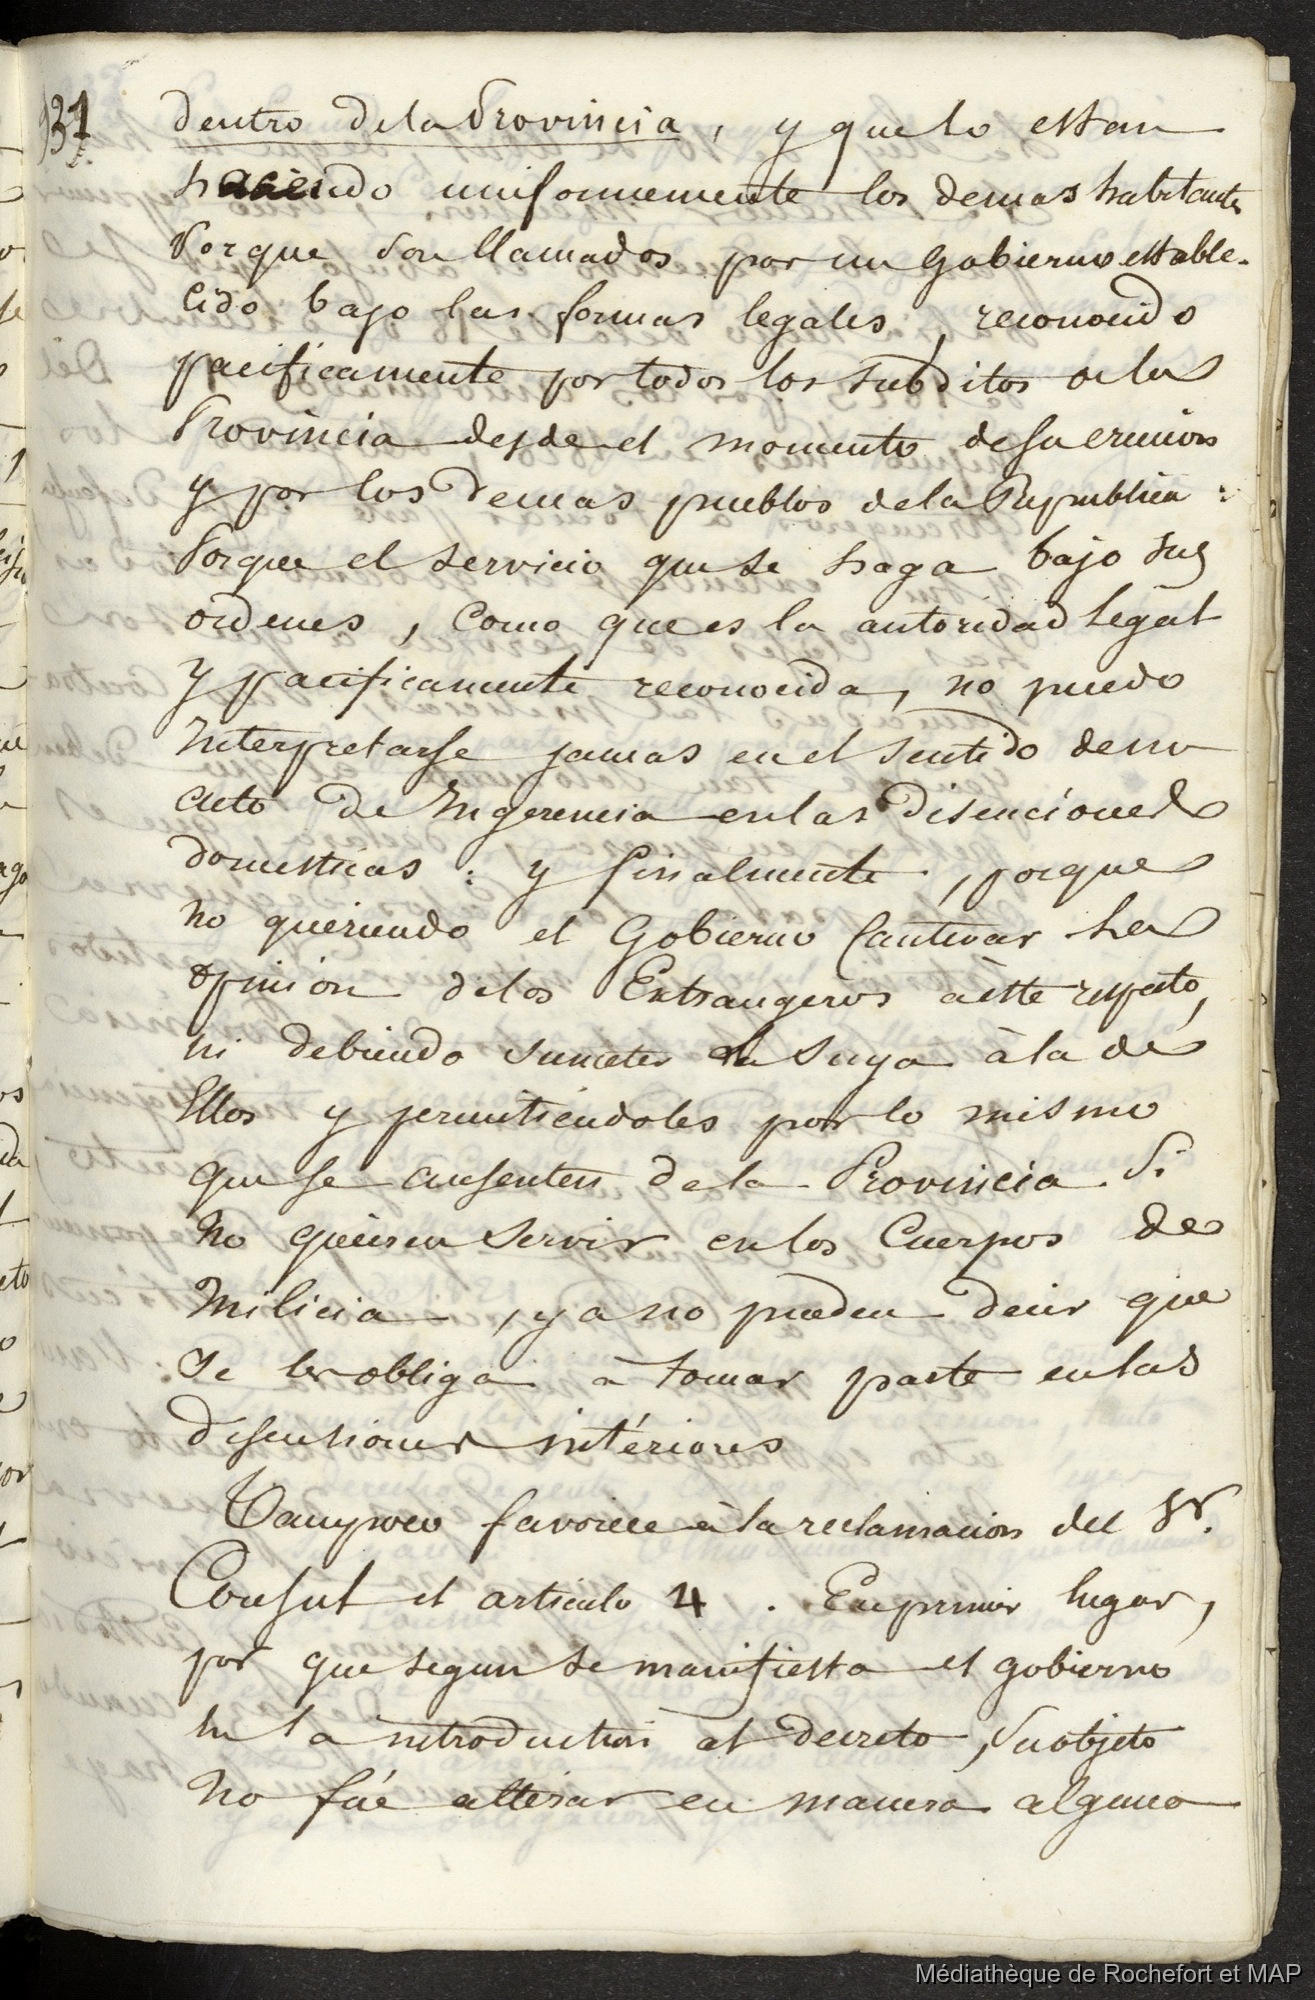 931
dentro de la Provincia, y que lo estan
haciendo uniformemente los demas habitantes
Porque son llamados por un Gobierno estable-
cido bajo las formas legales, reconocido
pacificamente por todos los subditos de la
Provincia desde el momento de su
y por los demas pueblos de la Republica :
Porque el servicio que se haga bajo sus
ordenes, como que es la autoridad legal
y pacificamente reconocida, no puedo
Interpretarse jamas en el sentido de un
acto de Ingerencia en las disenciones
domesticas : y finalmente, porque
no queriendo el Gobierno Cautivar la
opinion de los Extrangeros à este respeto,
ni debiendo someter la suya à la de
Ellos y permitiendoles por lo mismo
que se ausenten de la Provincia Si
no quieren servir en los Cuerpos de
Milicia, ya no pueden decir que
se les obliga à tomar parte en las
disensiones intériores
Tampoco favorece à la reclamacion del Sr.
Consul el articulo 4. En primer lugar,
por que segun se manifiesta el gobierno
en la introduction al decreto, su objeto
no fué alterar en manera alguna
Médiathèque de Rochefort et MAP